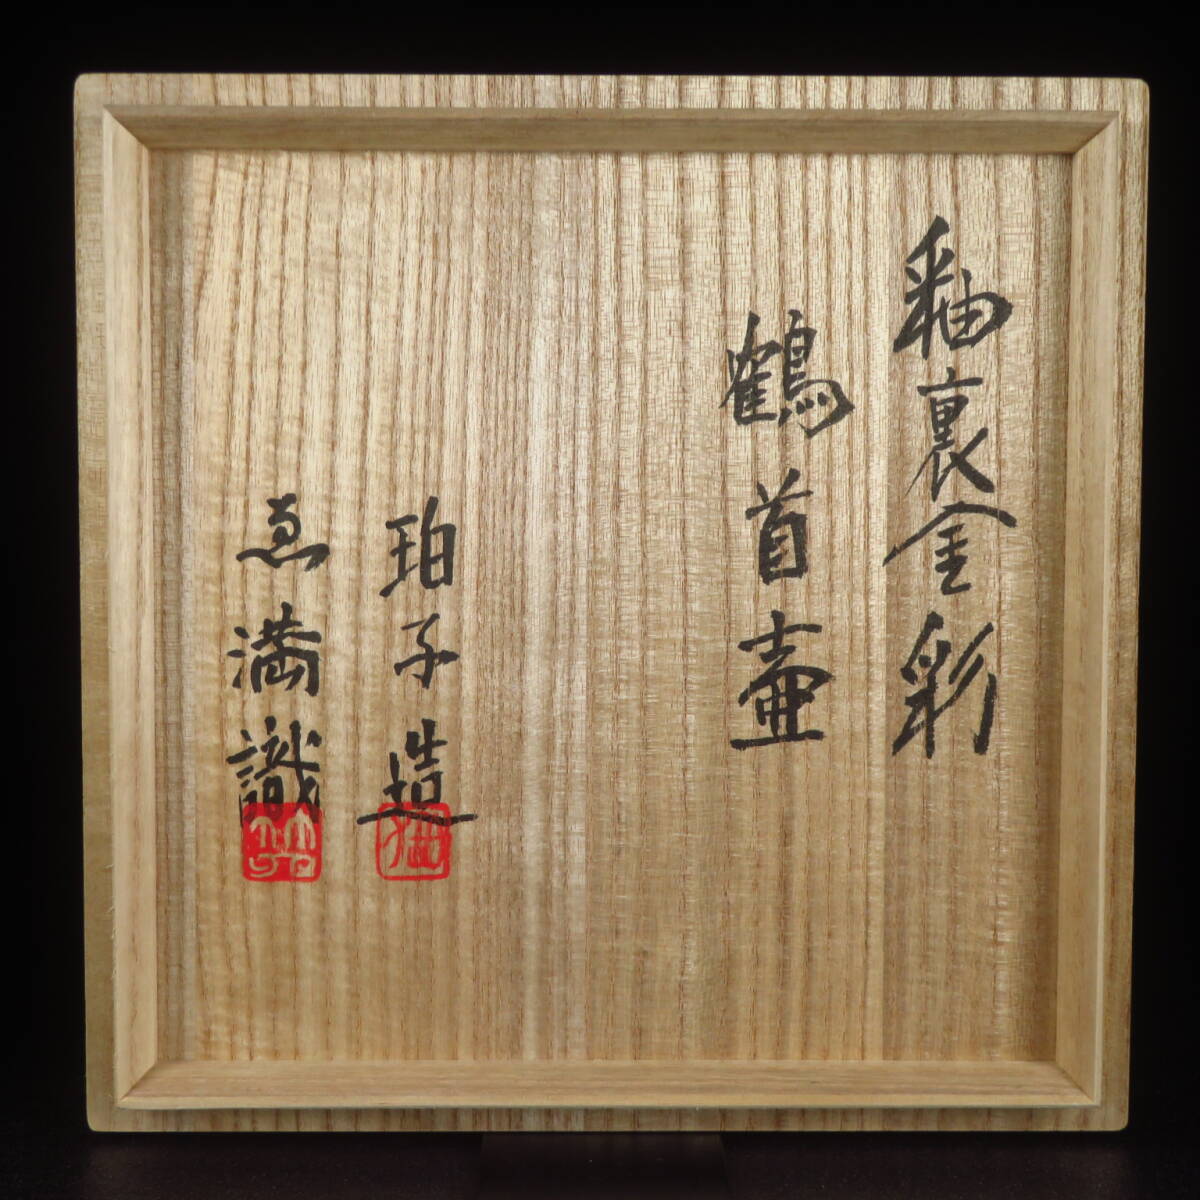 釉裏金彩
鶴首壷
珀子造
ゑ満識